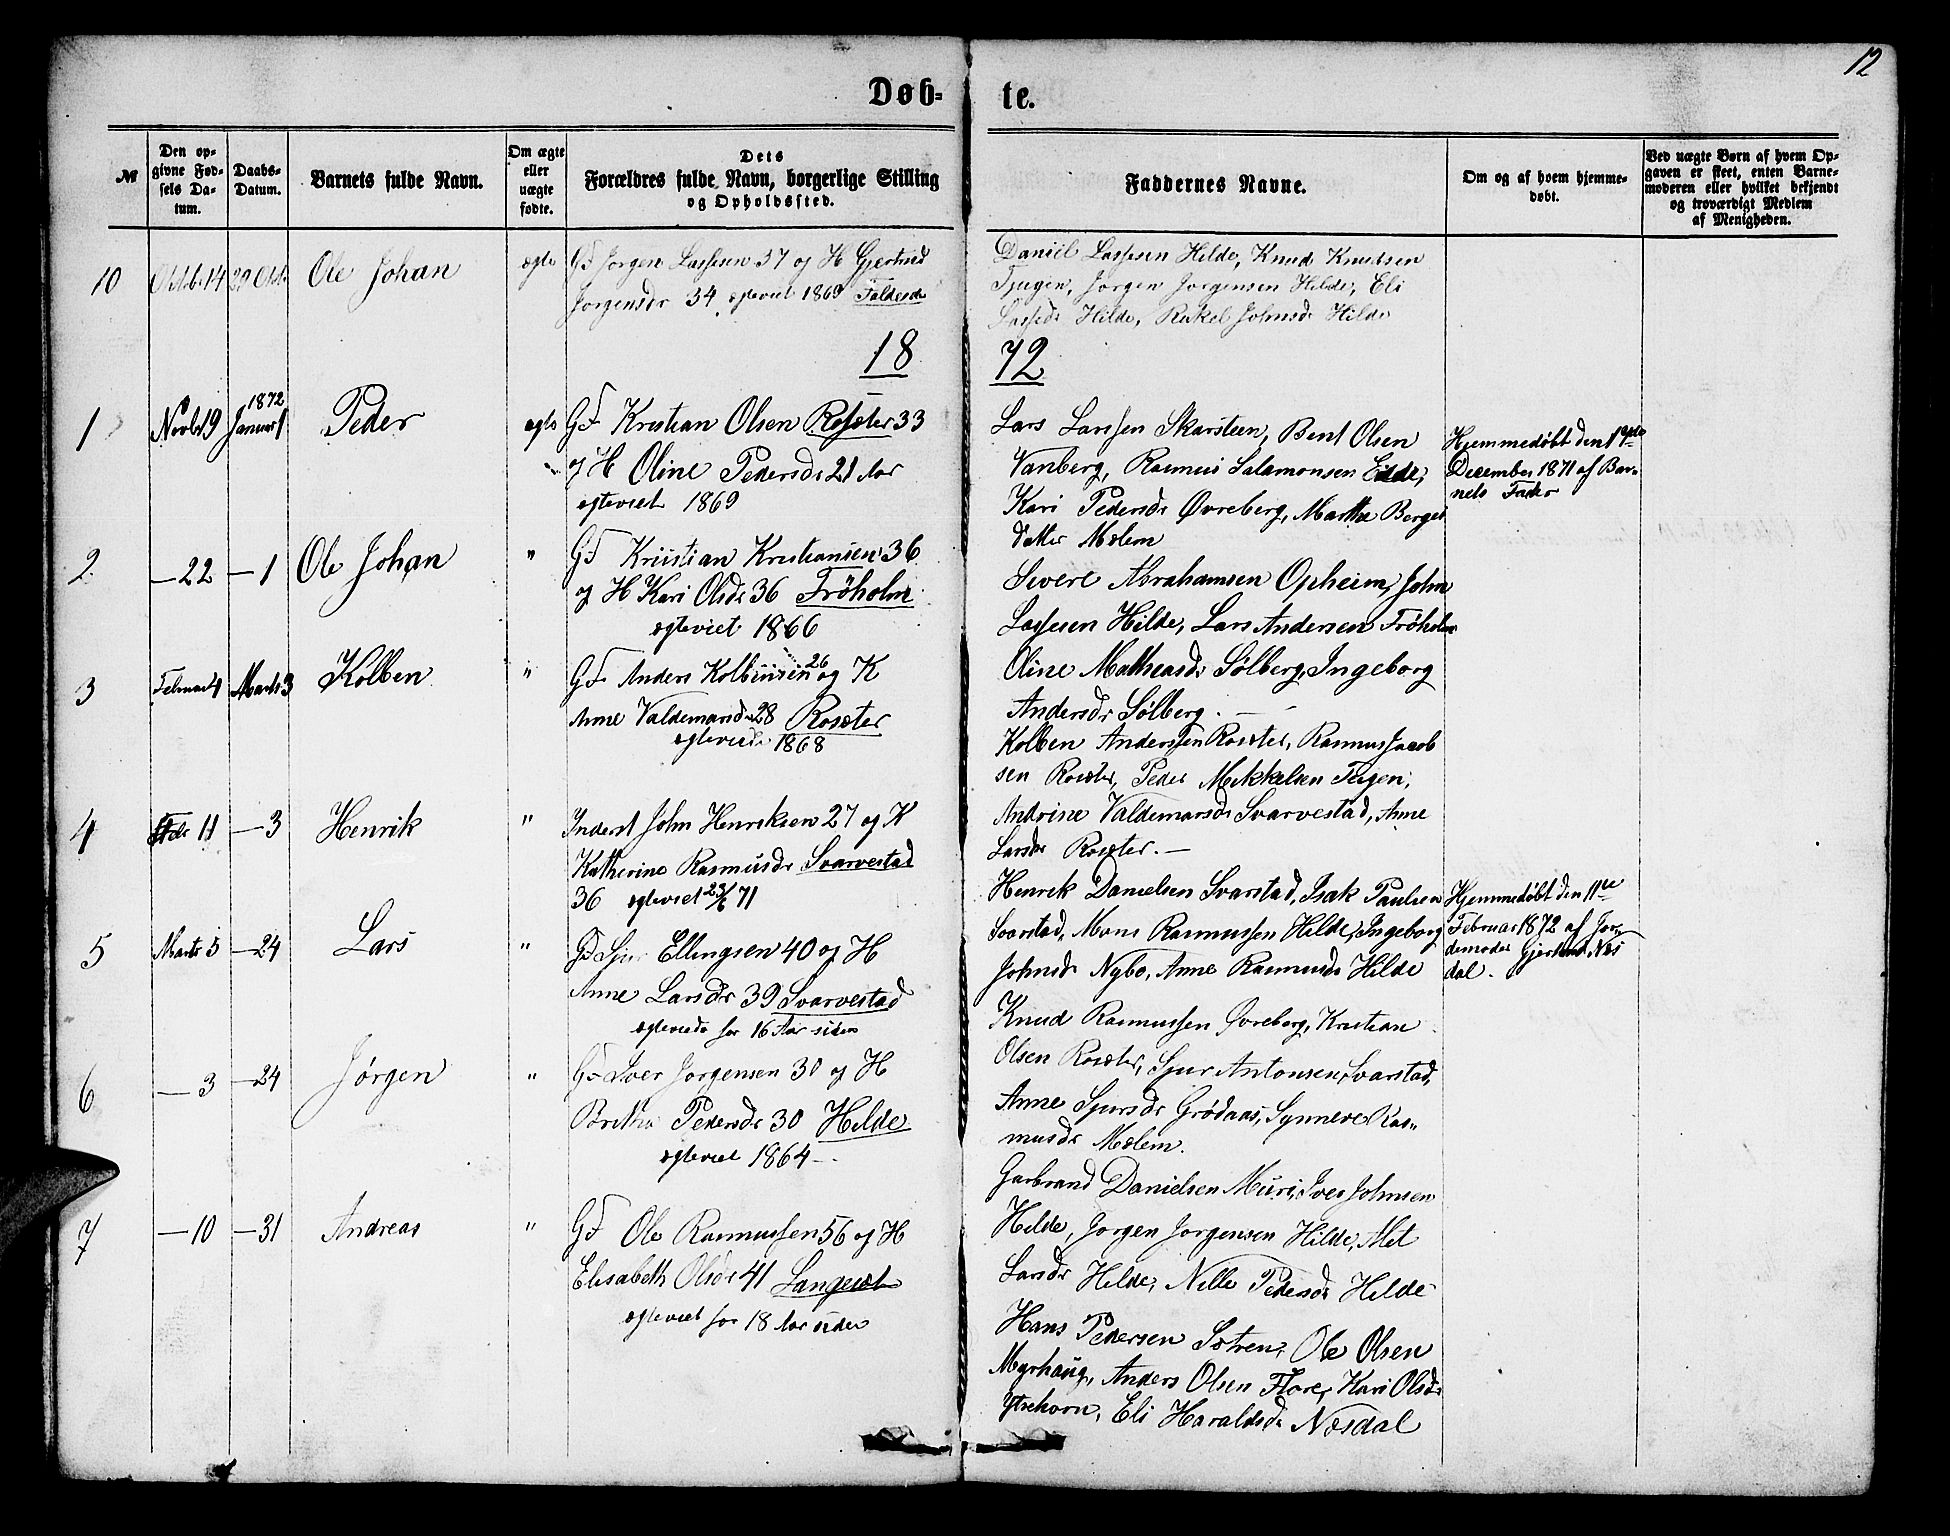 12
Døb-
te.
№
Den op-
givne Fød-
sels Da-
tum.
Daabs-
Datum.
Barnets fulde Navn.
Om ægte
eller
uægte
fødte.
Dets
Forældres fulde Navn, borgerlige Stilling
og Opholdssted.
Faddernes Navne.
Om og af hvem hjemme-
døbt.
Ved uægte Børn af hvem Op-
gaven er skeet, enten Barne-
moderen eller hvilket bekjendt
og troværdigt Medlem
af Menigheden.
10
Oktbr 14
29 Oktb
Ole Johan
ægte
Gd Jørgen Lassesen 37 og H Gjertrud
Jørgensdr 34 ægteviet 1869
Daniel Lassesen Hilde, Knud Knudsen
Tjugen, Jørgen Jørgensen Hilde, Eli
Lassedr Hilde, Rakel Johnsdr Hilde
18
72
1
Novbr 19
1872
Januar 1
Peder
ægte
GF Kristian Olsen Rosæter 33
og H Oline Pedersdr 21 Aar
ægteviet 1869
Lars Larssen Skarsteen, Bent Olsen
Vanberg, Rasmus Salamonsen Eide,
Kari Pedersdr Øvreberg, Marthe Berges
datter Mælem
Hjemmedøbt den 17de
December 1871 af Bar-
nets Fader
2
— 22
— 1
Ole Johan
"
GF Kristian Kristiansen 36
og H Kari Olsdr 36 Frøholm
ægteviet 1866
Sivert Abrahamsen Opheim, John
Lassesen Hilde, Lars Andersen Frøholm
Oline Matheasdr Sølberg, Ingeborg
Andersdr Sølberg. —
3
Februar 4
Marts 3
Kolben
"
GF Anders Kolbeinsen 26 og K
Anne Valdemarsdr 28 Rosæter
ægteviede 1868
Kolben Anderssen Rosæter, Rasmus Jacob
sen Rosæter, Peder Mikkelsen Tjugen,
Andrine Valdemarsdr Svarvestad, Anne
Larsdr Rosæter. —
4
Febr 11
— 3
Henrik
"
Inderst John Henriksen 27 og K
Katherine Rasmusdr Svarvestad
36 ægteviet 23/6 71
Henrik Danielsen Svarstad, Isak Paulsen
Svarstad, Mons Rasmussen Hilde, Ingeborg
Johnsdr Nybø, Anne Rasmusdr Hilde
Hjemmedøbt den 11te
Februar 1872 af Jor-
demoder Gjertrud Næs
dal.
5
Marts 5
— 24
Lars
"
GF Sjur Ellingsen 40 og H
Anne Larsdr 39 Svarvestad
ægteviede for 16 Aar siden
Knud Rasmussen Øvreberg, Kristian
Olsen Rosæter, Sjur Antonsen Svarstad,
Anne Sjursdr Grødaas, Synneve Ras-
musdr Mælem.
6
— 3
— 24
Jørgen
"
GF Iver Jørgensen 30 og H
Brithe Pedersdr 30 Hilde
ægteviet 1864 —
Garbrand Danielsen Muri, Iver Johnsen
Hilde, Jørgen Jørgensen Hilde, Alet
Larsdr Hilde, Nille Pedersdr Hilde
7
— 10
— 31
Andreas
"
GF Ole Rasmussen 56 og H
Elisabeth Olsdr 41 Langesæt
ægteviet for 18 Aar siden
Hans Pedersen Sætren, Ole Olsen
Myrhaug, Anders Olsen Flore, Kari Olsdr
Ytrehorn, Eli Haraldsdr Næsdal